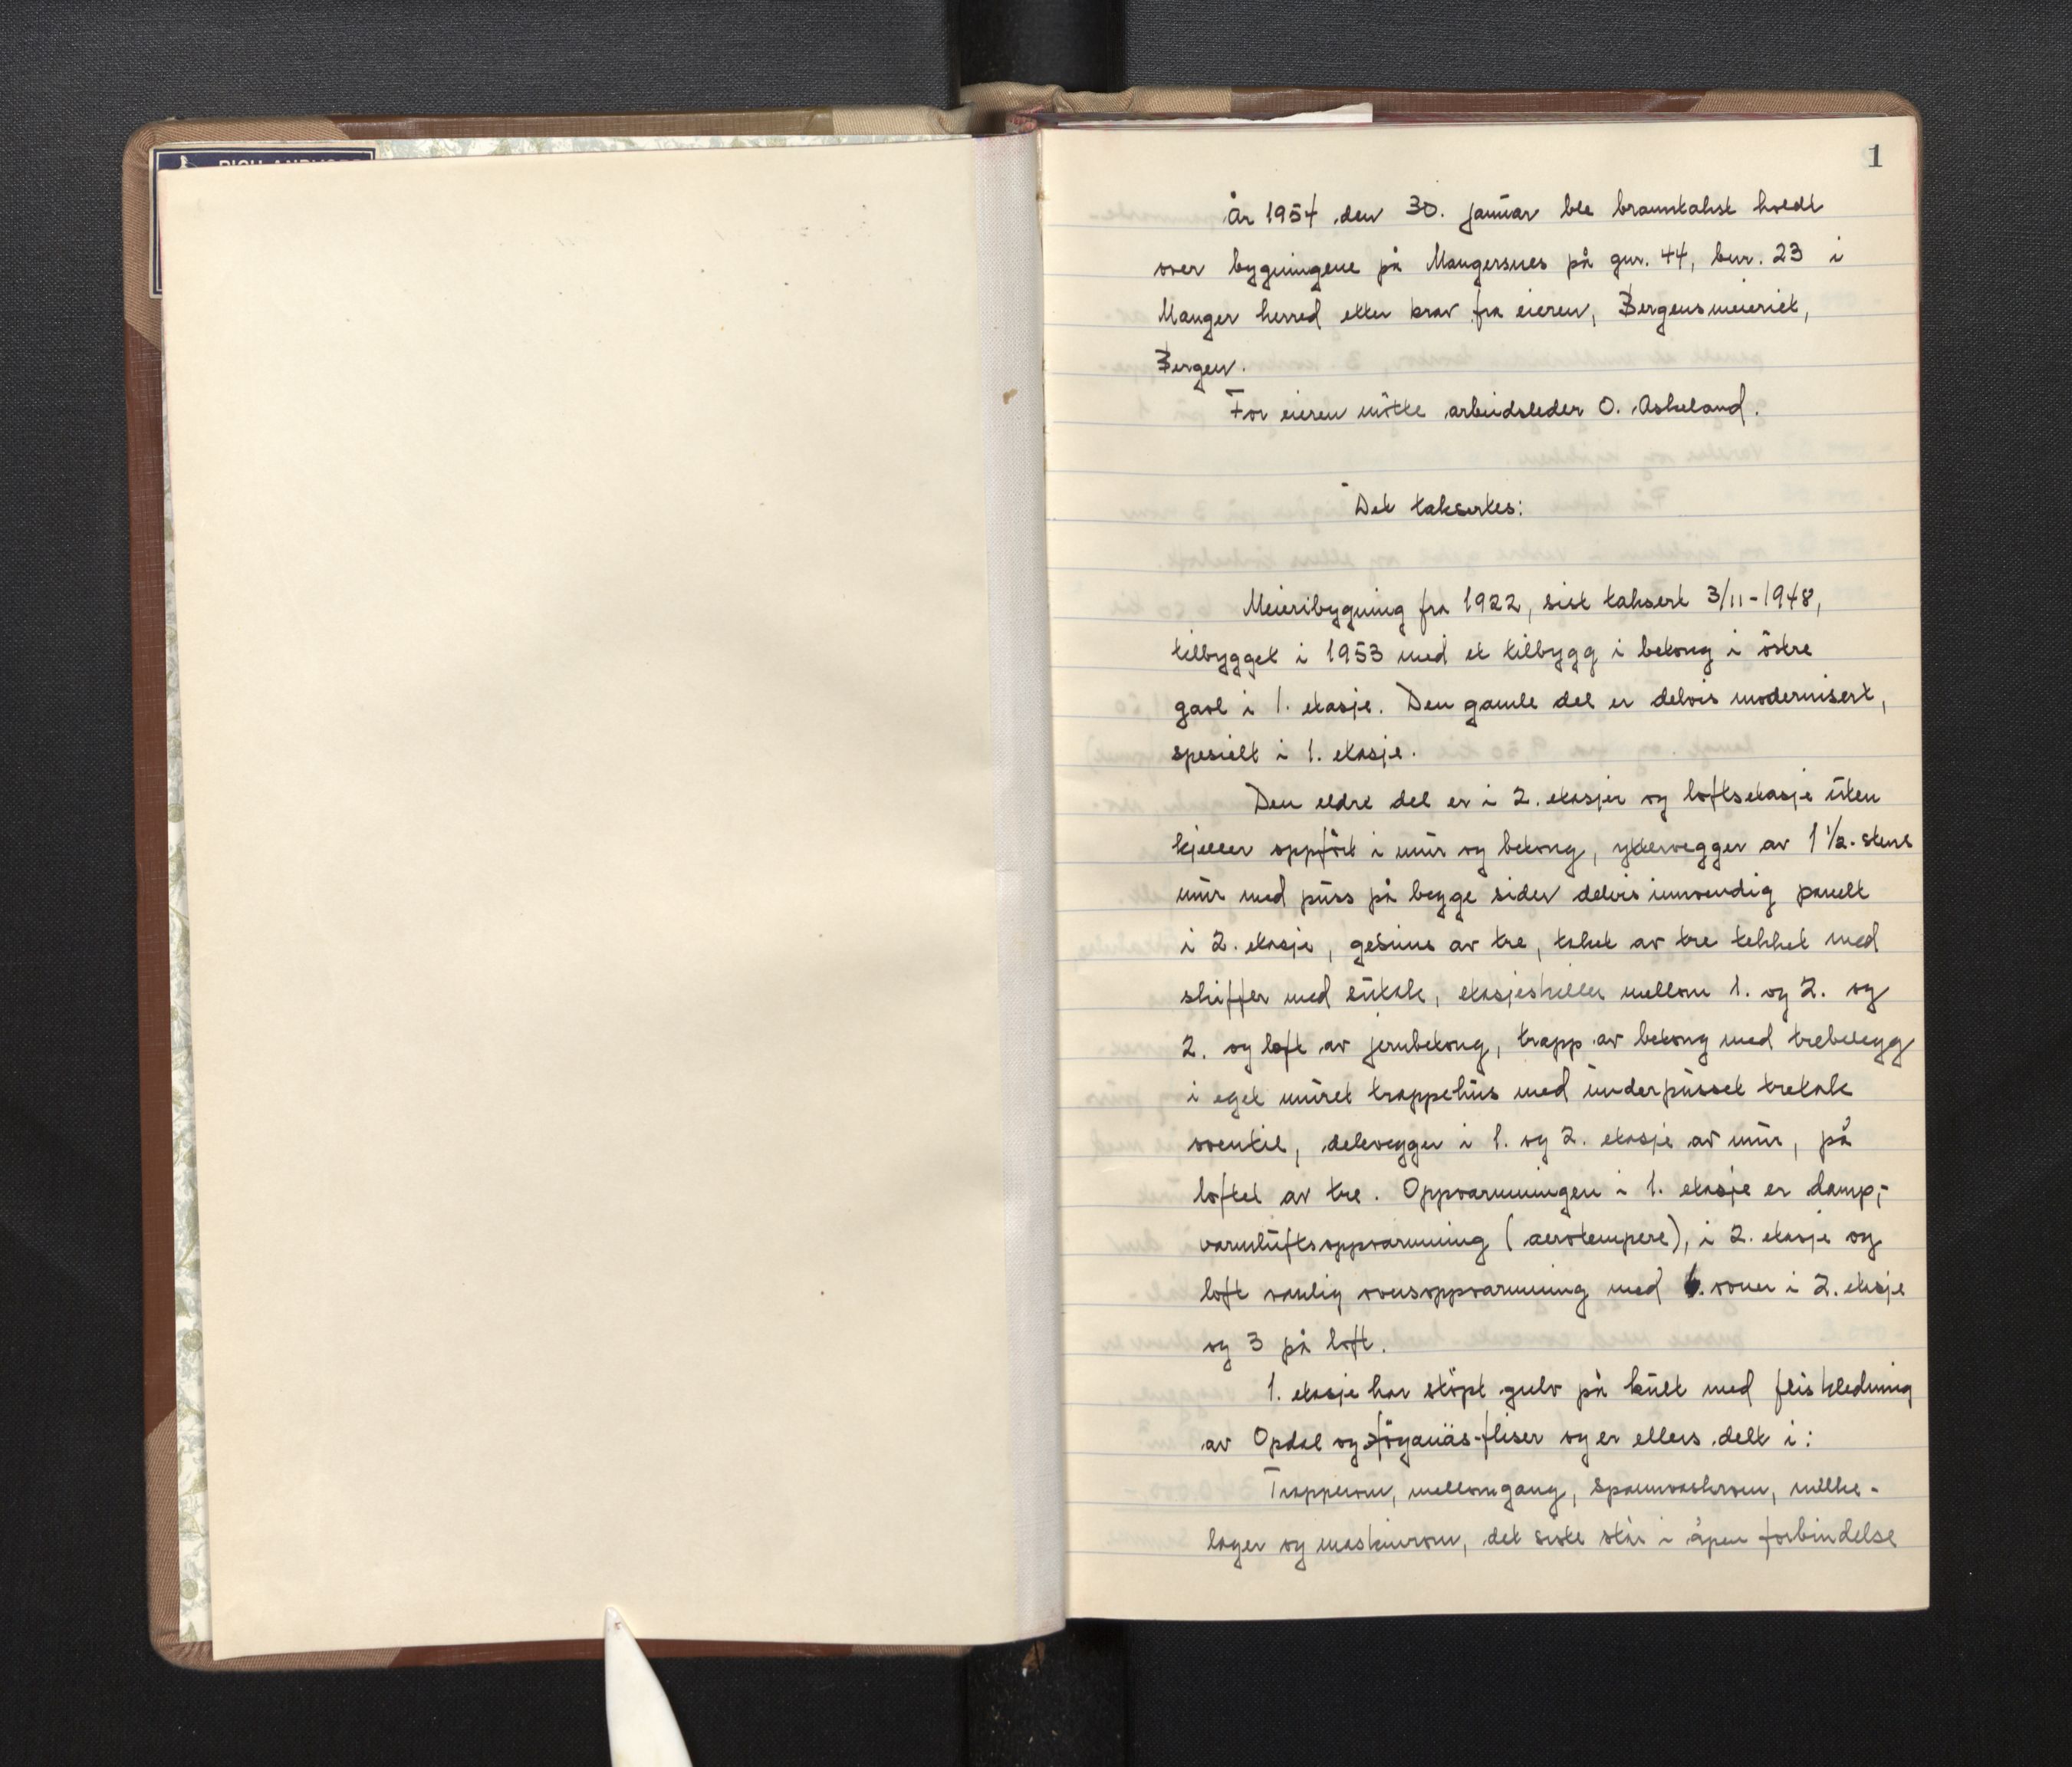 1
År 1954 den 30. januar ble branntakst holdt
over bygningene på Mangersnes på gnr. 44, bnr. 23 i
Manger herred etter krav fra eieren, Bergensmeieriet,
Bergen.
For eieren møtte arbeidsleder O. Askeland.
Det taksertes:
Meieribygning fra 1922, sist taksert 3/11-1948,
tilbygget i 1953 med et tilbygg i betong i östre
gavl i 1. etasje. Den gamle del er delvis modernisert,
spesielt i 1. etasje.
Den eldre del er i 2. etasjer og loftsetasje uten
kjeller oppfört i mur og betong, yttervegger av 1 1/2-stens
mur med puss på begge sider delvis innvendig panelt
i 2. etasje, gesims av tre, taket av tre tekket med
skiffer med sutak, etasjeskiller mellom 1. og 2. og
2. og loft av jernbetong, trapp av betong med trebelegg
i eget muret trappehus med underpusset tretak
oventil, delevegger i 1. og 2. etasje av mur, på
loftet av tre. Oppvarmningen i 1. etasje er damp,-
varmluftsoppvarmning (aerotempere), i 2. etasje og
loft vanlig ovnsoppvarmning med 6. ovner i 2. etasje
og 3 på loft.
1. etasje har stöpt gulv på kult med fliskledning
av Opdal og Höganäs-fliser og er ellers delt i:
Trapperom, mellomgang, spannvaskrom, melke-
lager og maskinrom, det siste står i åpen forbindelse